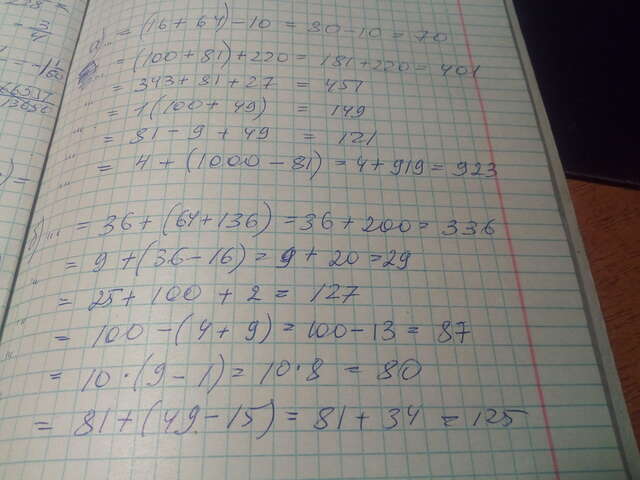 а)... = (16 + 64) - 10 = 80 - 10 = 70
... = (100 + 81) + 220 = 181 + 220 = 401
... = 343 + 81 + 27 = 451
... = 1(100 + 49) = 149
... = 81 - 9 + 49 = 121
... = 4 + (1000 - 81) = 4 + 919 = 923
б)... = 36 + (64 + 136) = 36 + 200 = 336
= 9 + (36 - 16) = 9 + 20 = 29
= 25 + 100 + 2 = 127
= 100 - (4 + 9) = 100 - 13 = 87
= 10 · (9 - 1) = 10 · 8 = 80
= 81 + (49 - 15) = 81 + 34 = 125